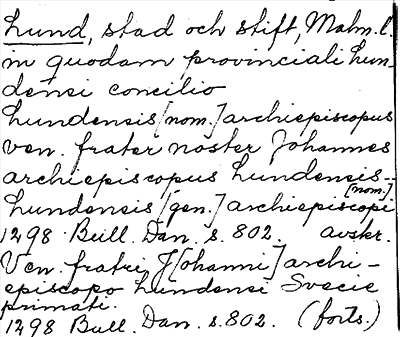 Lund, stad och stift, Malm. l.
in quodam provinciali lun-
densi concilio
Lundensis [nom.] archiepiscopus
ven. frater noster Johannes
archiepiscopus Lundensis -
[nom.]
Lundensis [gen.] archiepiscopi
1298 Bull. Dan. s. 802. avskr.
Ven. fratri J[ohanni] archi-
episcopo Lundensi Svecie
primati.
1298 Bull. Dan. s. 802. (forts.)